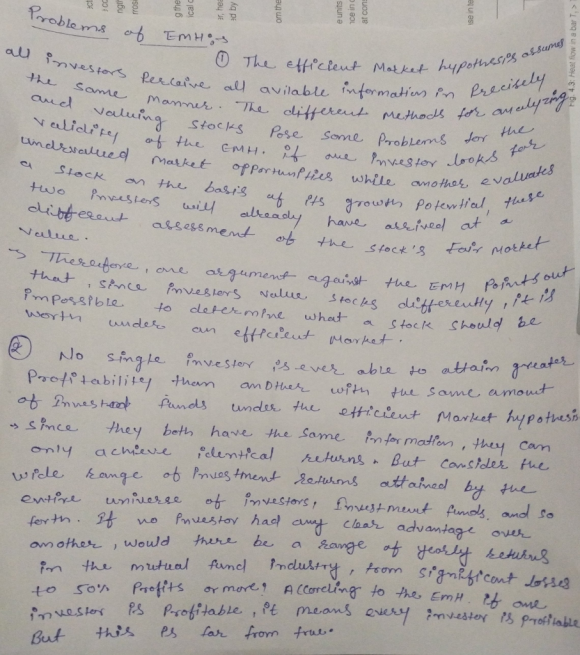 Problems of EMH:→
① The efficient Market hypothesis assumes
all investors Percaive all avilable information in Precisely
the same manner. The different methods for analyzing
and valuing stocks Pose some Problems for the
validity of the EMH. if one investor looks for
undervalued market opportunities while another evaluates
a stock on the basis of its growth potential, these
two investors will already have arrived at a
different assessment of the stock's fair market
value.
→ Therefore, one argument against the EMH Points out
that, since investors value stocks differently, it is
impossible to determine what a stock should be
worth under an efficient Market.
② No single investor is ever able to attain greater
Profitability than another with the same amount
of Invested funds under the efficient Market hypothesis
→ Since they both have the same information, they can
only achieve identical returns. But consider the
wide range of investment returns attained by the
entire universe of investors, Investment funds, and so
forth. If no investor had any clear advantage over
another, would there be a range of yearly returns
in the mutual fund industry, from significant losses
to 50% Profits or more? According to the EMH. if one
investor is Profitable, it means every investor is profitable
But this is far from true.
Fig. 4.3: Heat flow in a bar T₁ >